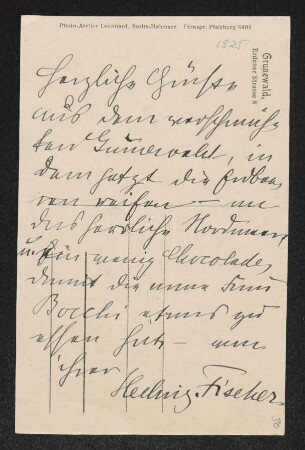 Photo-Atelier Leonhard, Berlin-Halensee Fernspr. Pfalzburg 6491
1925
Grunewald,
Erdener Strasse 8
Herzliche Grüsse
aus dem verschmäh-
ten Grunewald, in
dem jetzt die Erdbee-
ren reifen — an
das herrliche Nordmeer,
u. ein wenig Chocolade,
damit die arme Frau
Bocchi etwas zu
essen hat — von
ihrer
Hedwig Fischer